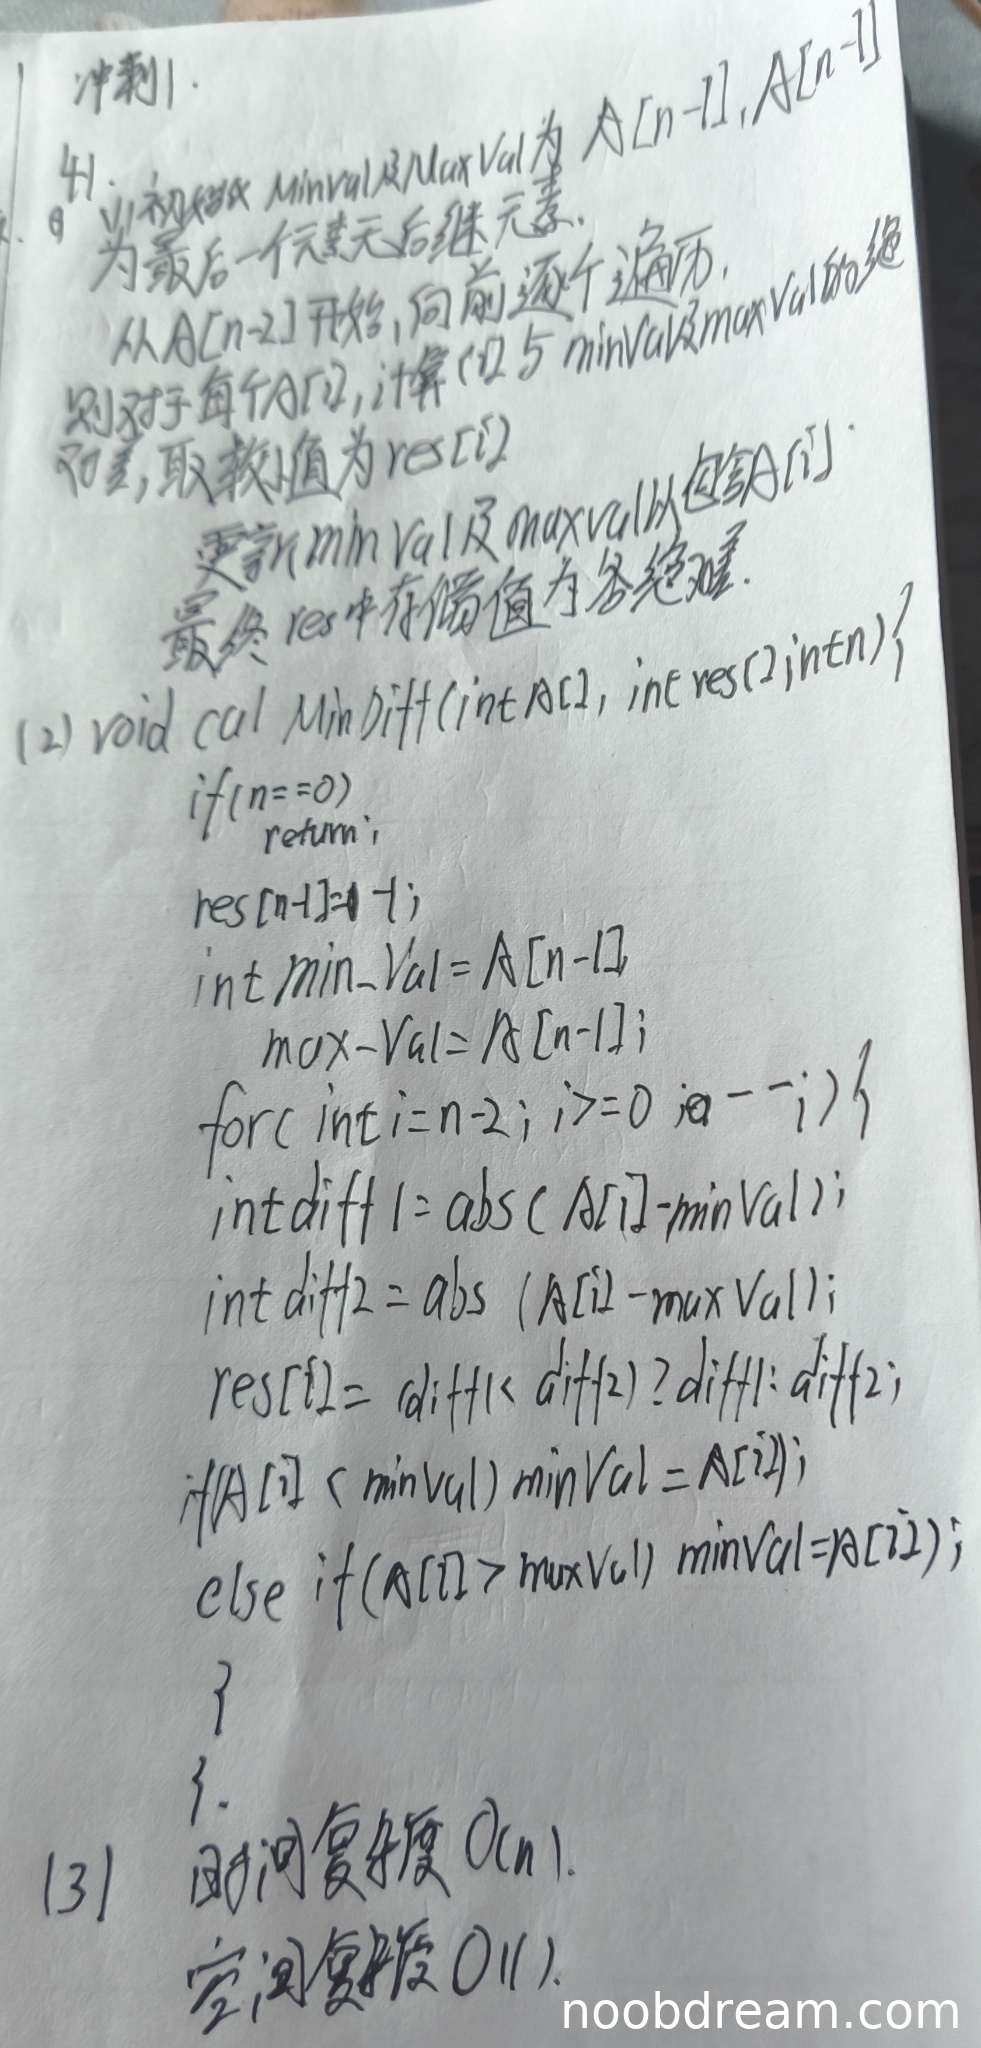 冲刺1.
41.
(1)初始化 MinVal及MaxVal为 A[n-1],A[n-1]
为最后一个元素无后继元素.
从A[n-2]开始,向前逐个遍历.
则对于每个A[i],计算 [i]与 minVal及maxVal的绝
对差,取较小值为res[i]
更新minVal及maxval以包含A[i].
最终res中存储值为各绝对差.
(2) void cal MinDiff(int A[], int res[], int n){
if(n==0)
return;
res[n-1]=-1;
int min_Val = A[n-1],
max-Val = A[n-1];
for( int i=n-2; i>=0; --i){
int diff1 = abs( A[i]-minVal);
int diff2 = abs (A[i]-maxVal);
res[i]= (diff1< diff2)?diff1:diff2;
if(A[i] < minVal) minVal = A[i]);
else if(A[i]>maxVal) minVal=A[i]);
}
}.
(3) 时间复杂度 O(n).
空间复杂度 O(1).
noobdream.com